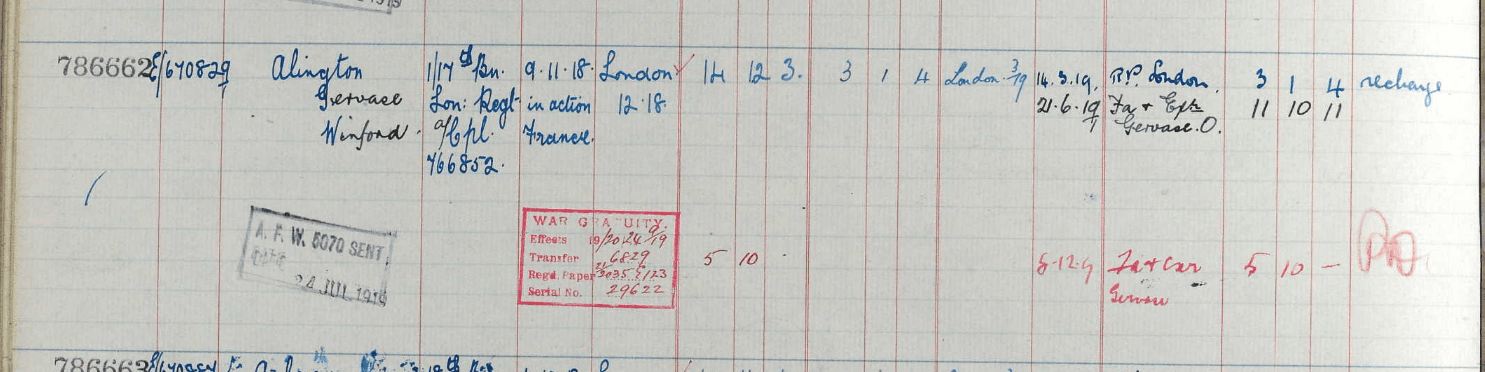 786662 E/670829 Alington 1/17th Bn. 9.11.18. London 14 12 3. 3 1 4 London 3/19 14.3.19. R.P. London. 3 1 4 recharge
Gervase Lon: Regt in action 12.18. 21.6.19 Fa & Exr 11 10 11
Winford. a/Cpl. France. Gervase.O.
766852.
A. F. W. 5070 SENT.
DATE
24 JUL 1919
WAR GRATUITY.
Effects
Transfer 6829 5 10 - 5.12.9 5 10 —
Regd. Paper Gervase
Serial No. 29622
786663